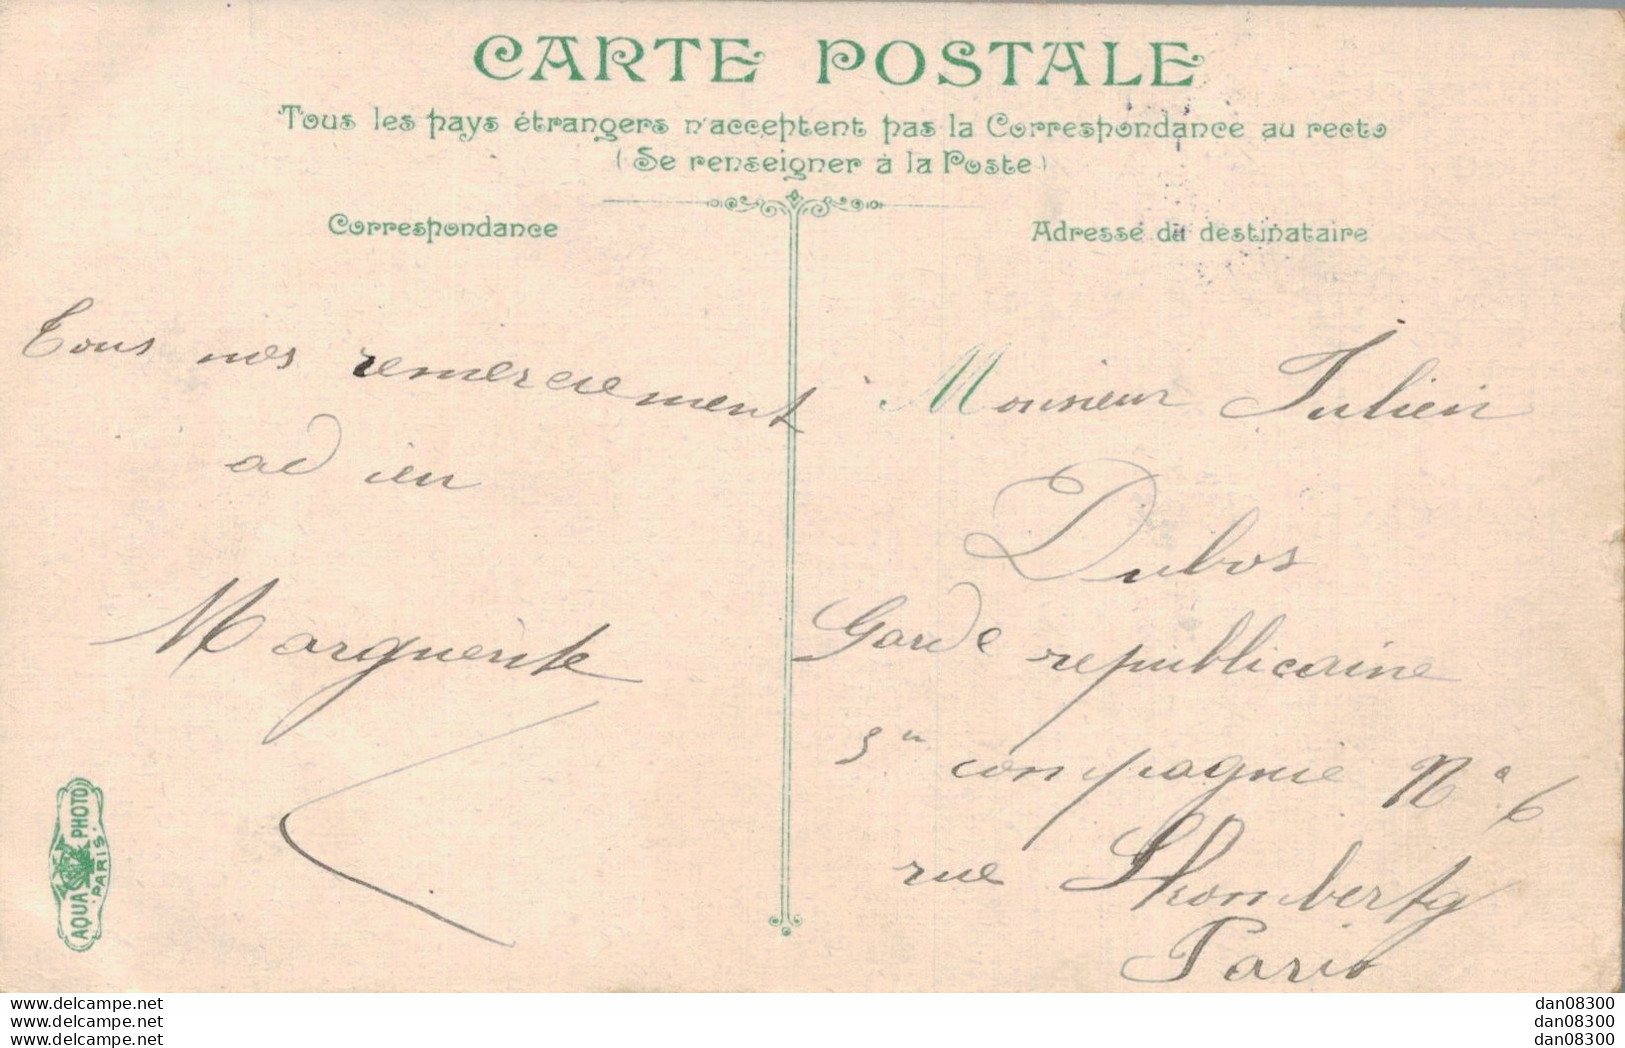 CARTE POSTALE
Tous les pays étrangers n'acceptent pas la Correspondance au recto
(Se renseigner à la Poste)
Correspondance
Adresse du destinataire
Tous nos remerciement
ad ieu
Marguerite
Monsieur Julien
Dubos
Garde republicaine
compagnie N° 6
rue
Paris
AQUA PHOTO
PARIS
www.delcampe.net
www.delcampe.net
www.delcampe.net
dan08300
dan08300
dan08300